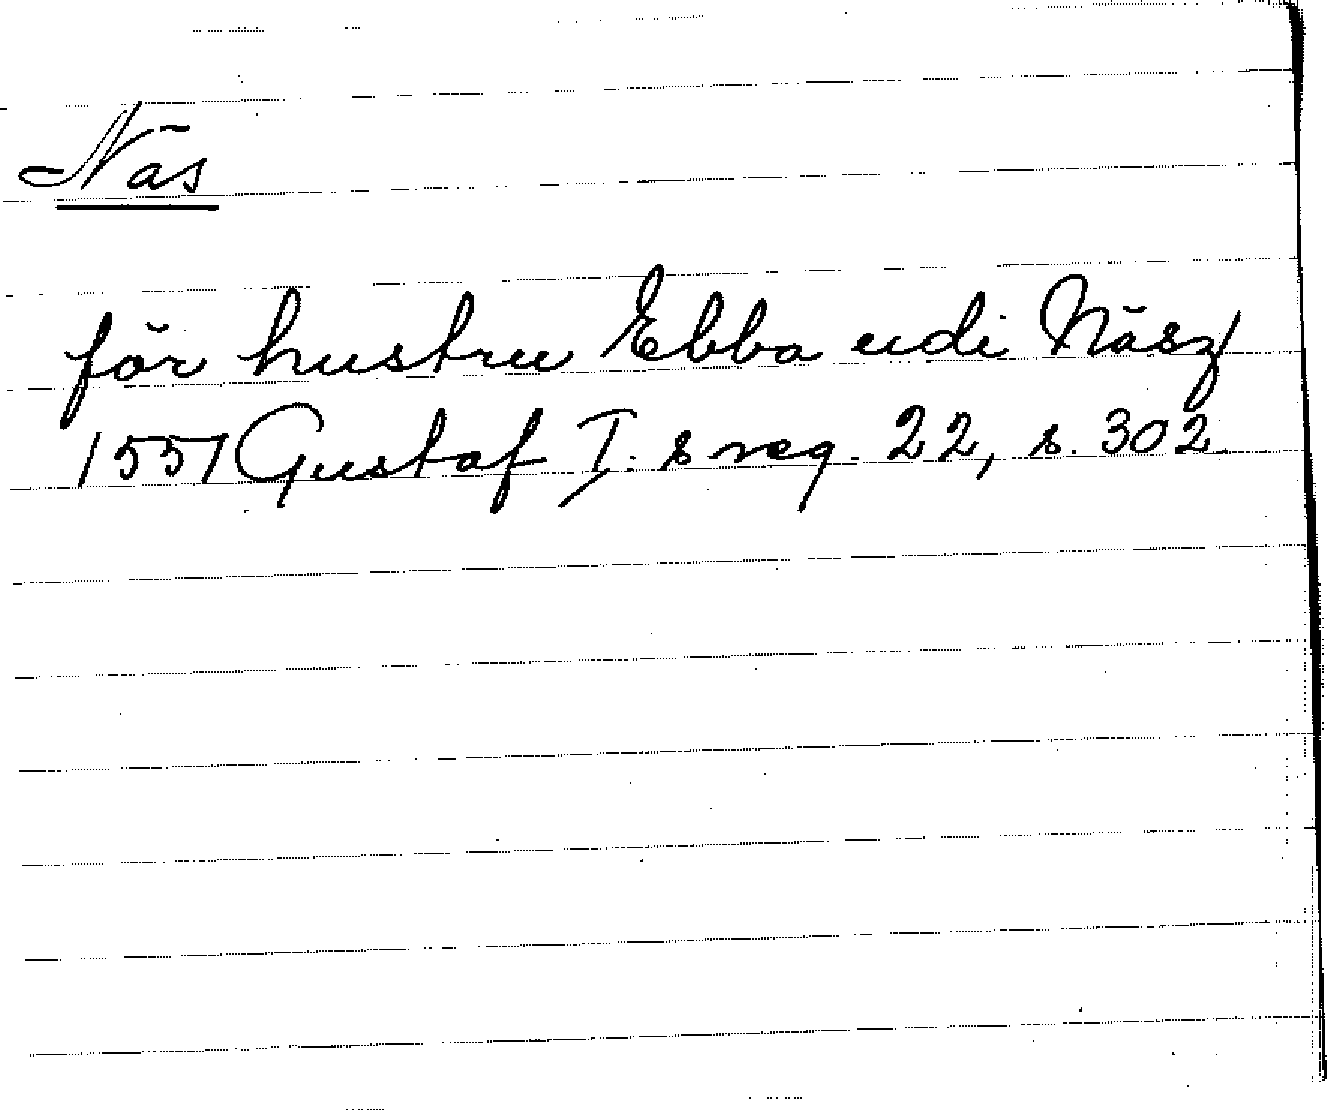 Näs
för hustru Ebba udi Näsz
1551 Gustaf I. s reg. 22, s. 302.